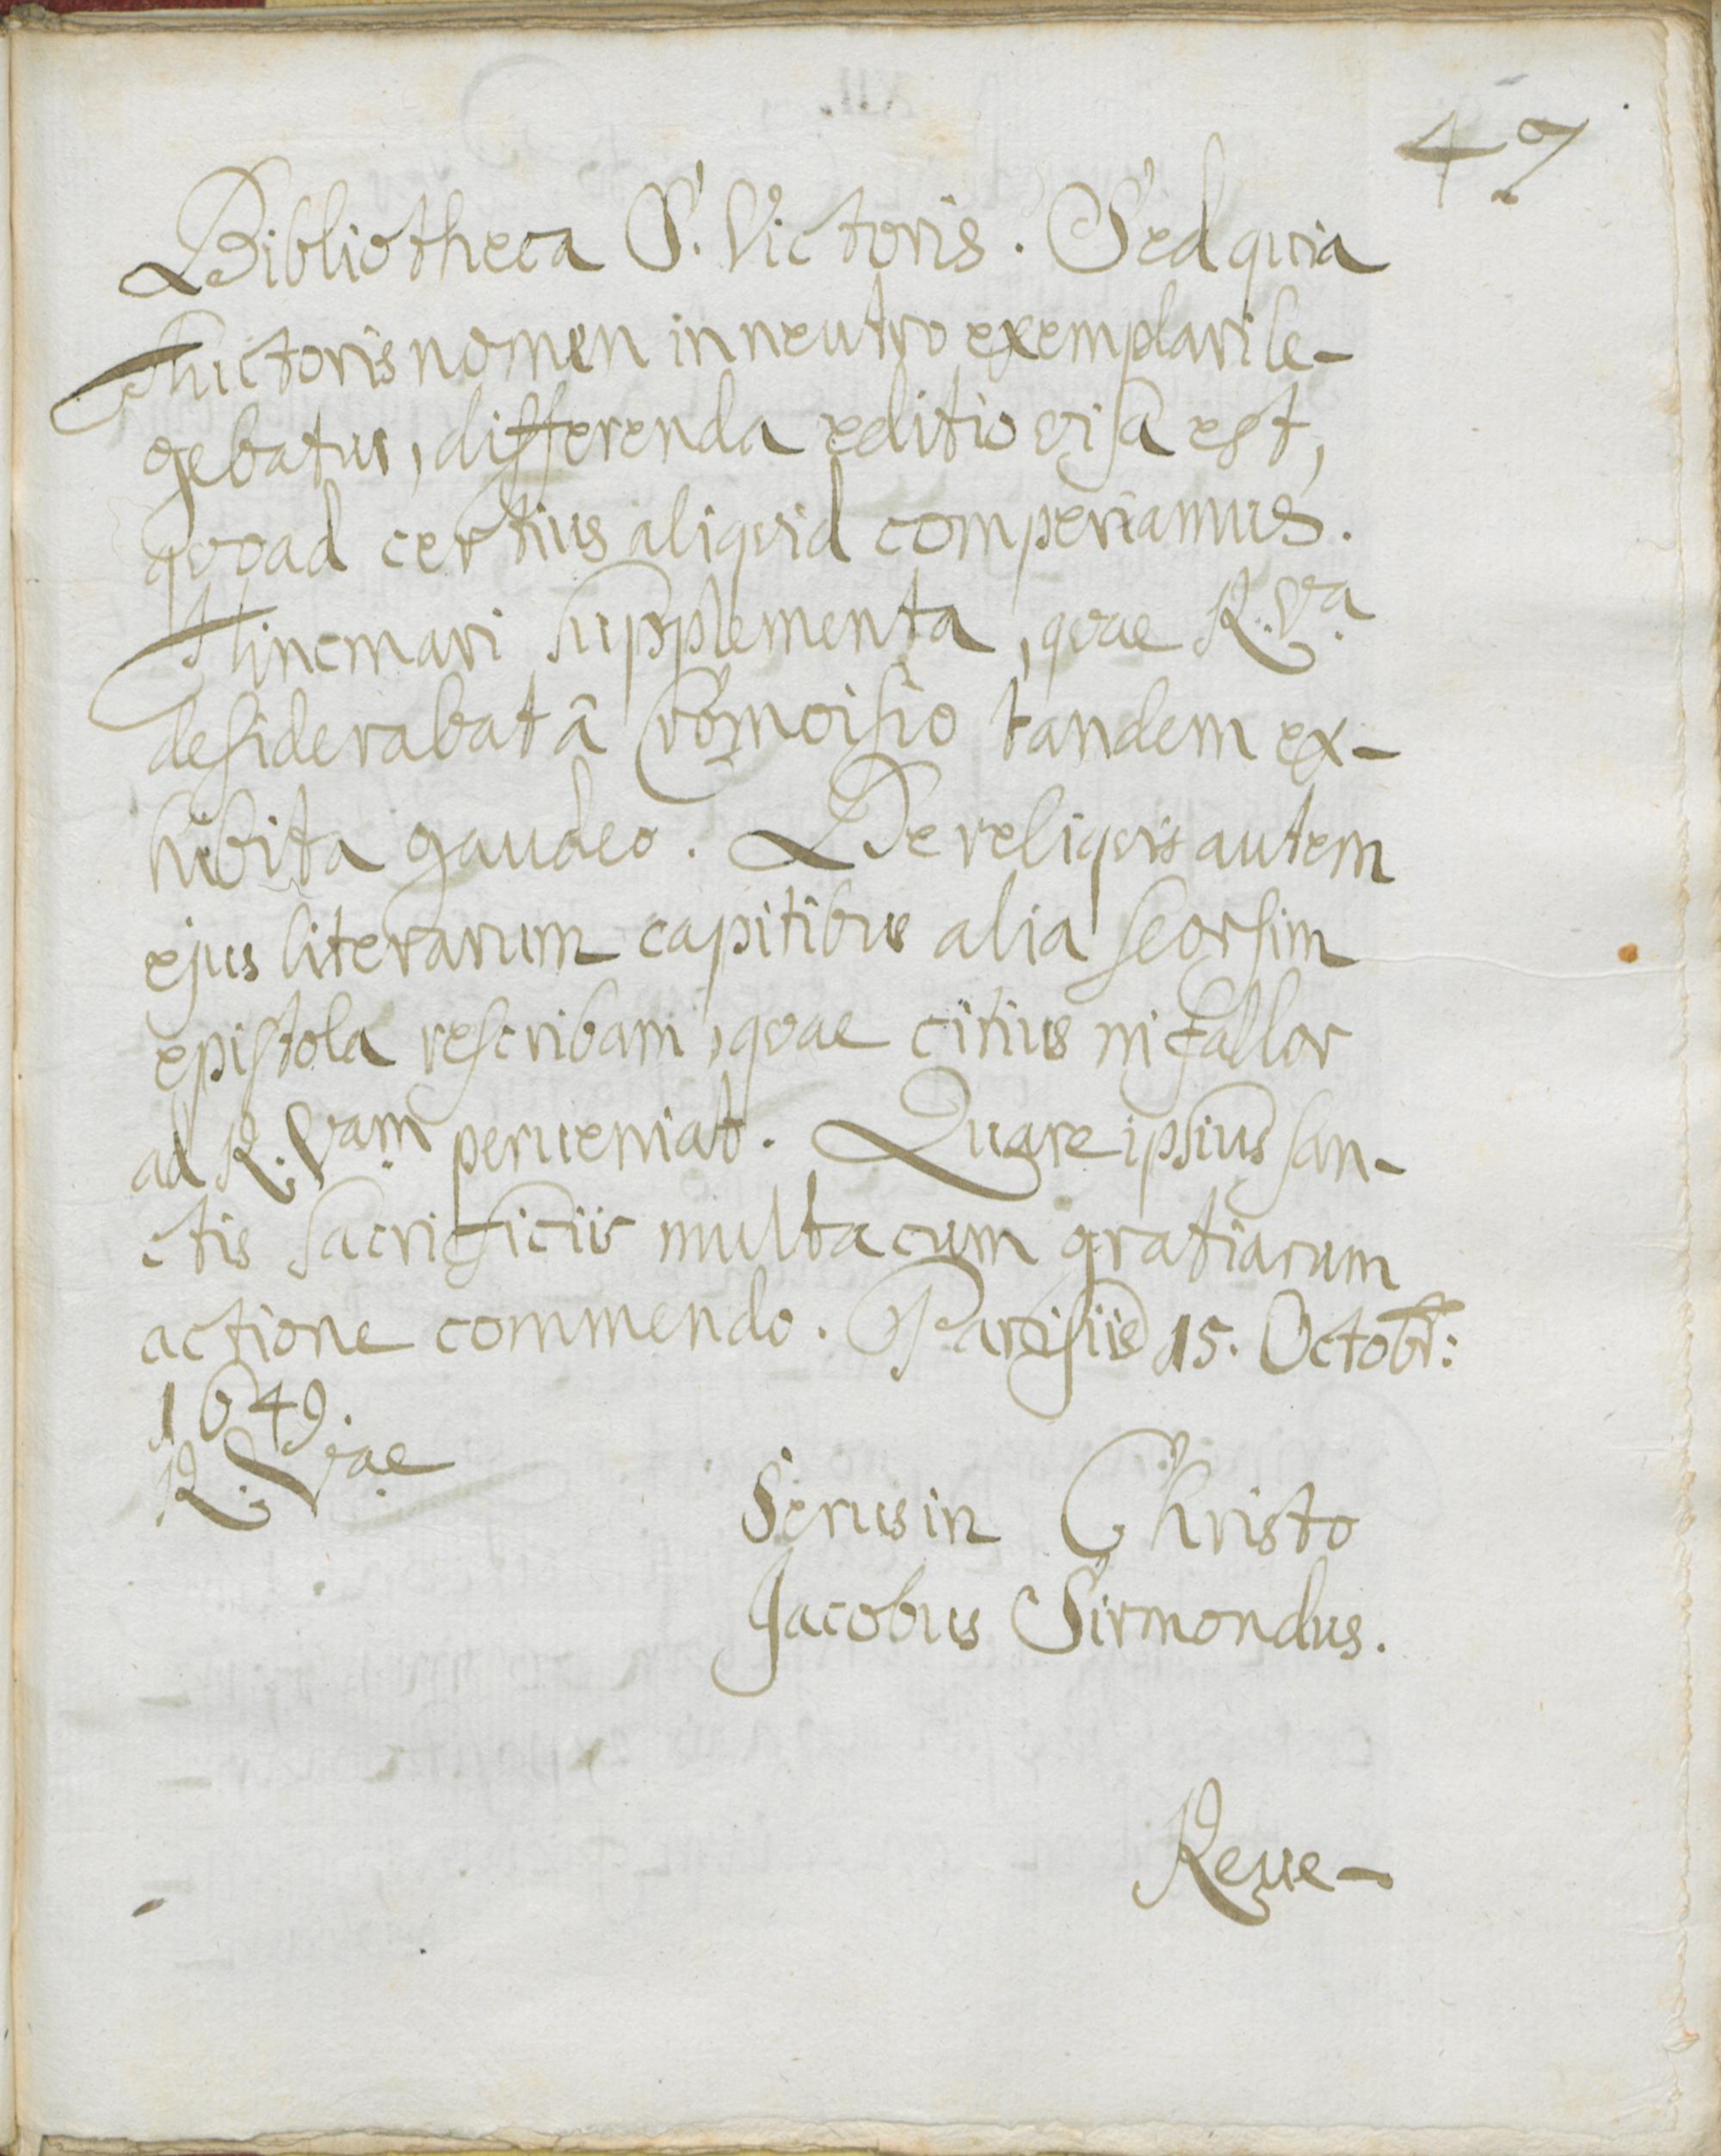 47
Bibliotheca S. Victoris. Sed quia
Auctoris nomen in neutro exemplari le-
gebatur, differenda editio visa est,
quoad certius aliquid comperiamus.
Hincmari supplementa, quae R. Va.
desiderabat â Cromoisio tandem ex-
hibita gaudeo. De reliquis autem
ejus literarum capitibus alia seorsim
epistola rescribam, quae citius ni fallor
ad R. Vam. perueniat. Quare ipsius san-
ctis sacrificiis multa cum gratiarum
actione commendo. Parisiis 15. Octobr:
1649.
R. Vae.
Seruus in Christo
Jacobus Sirmondus.
Reue-